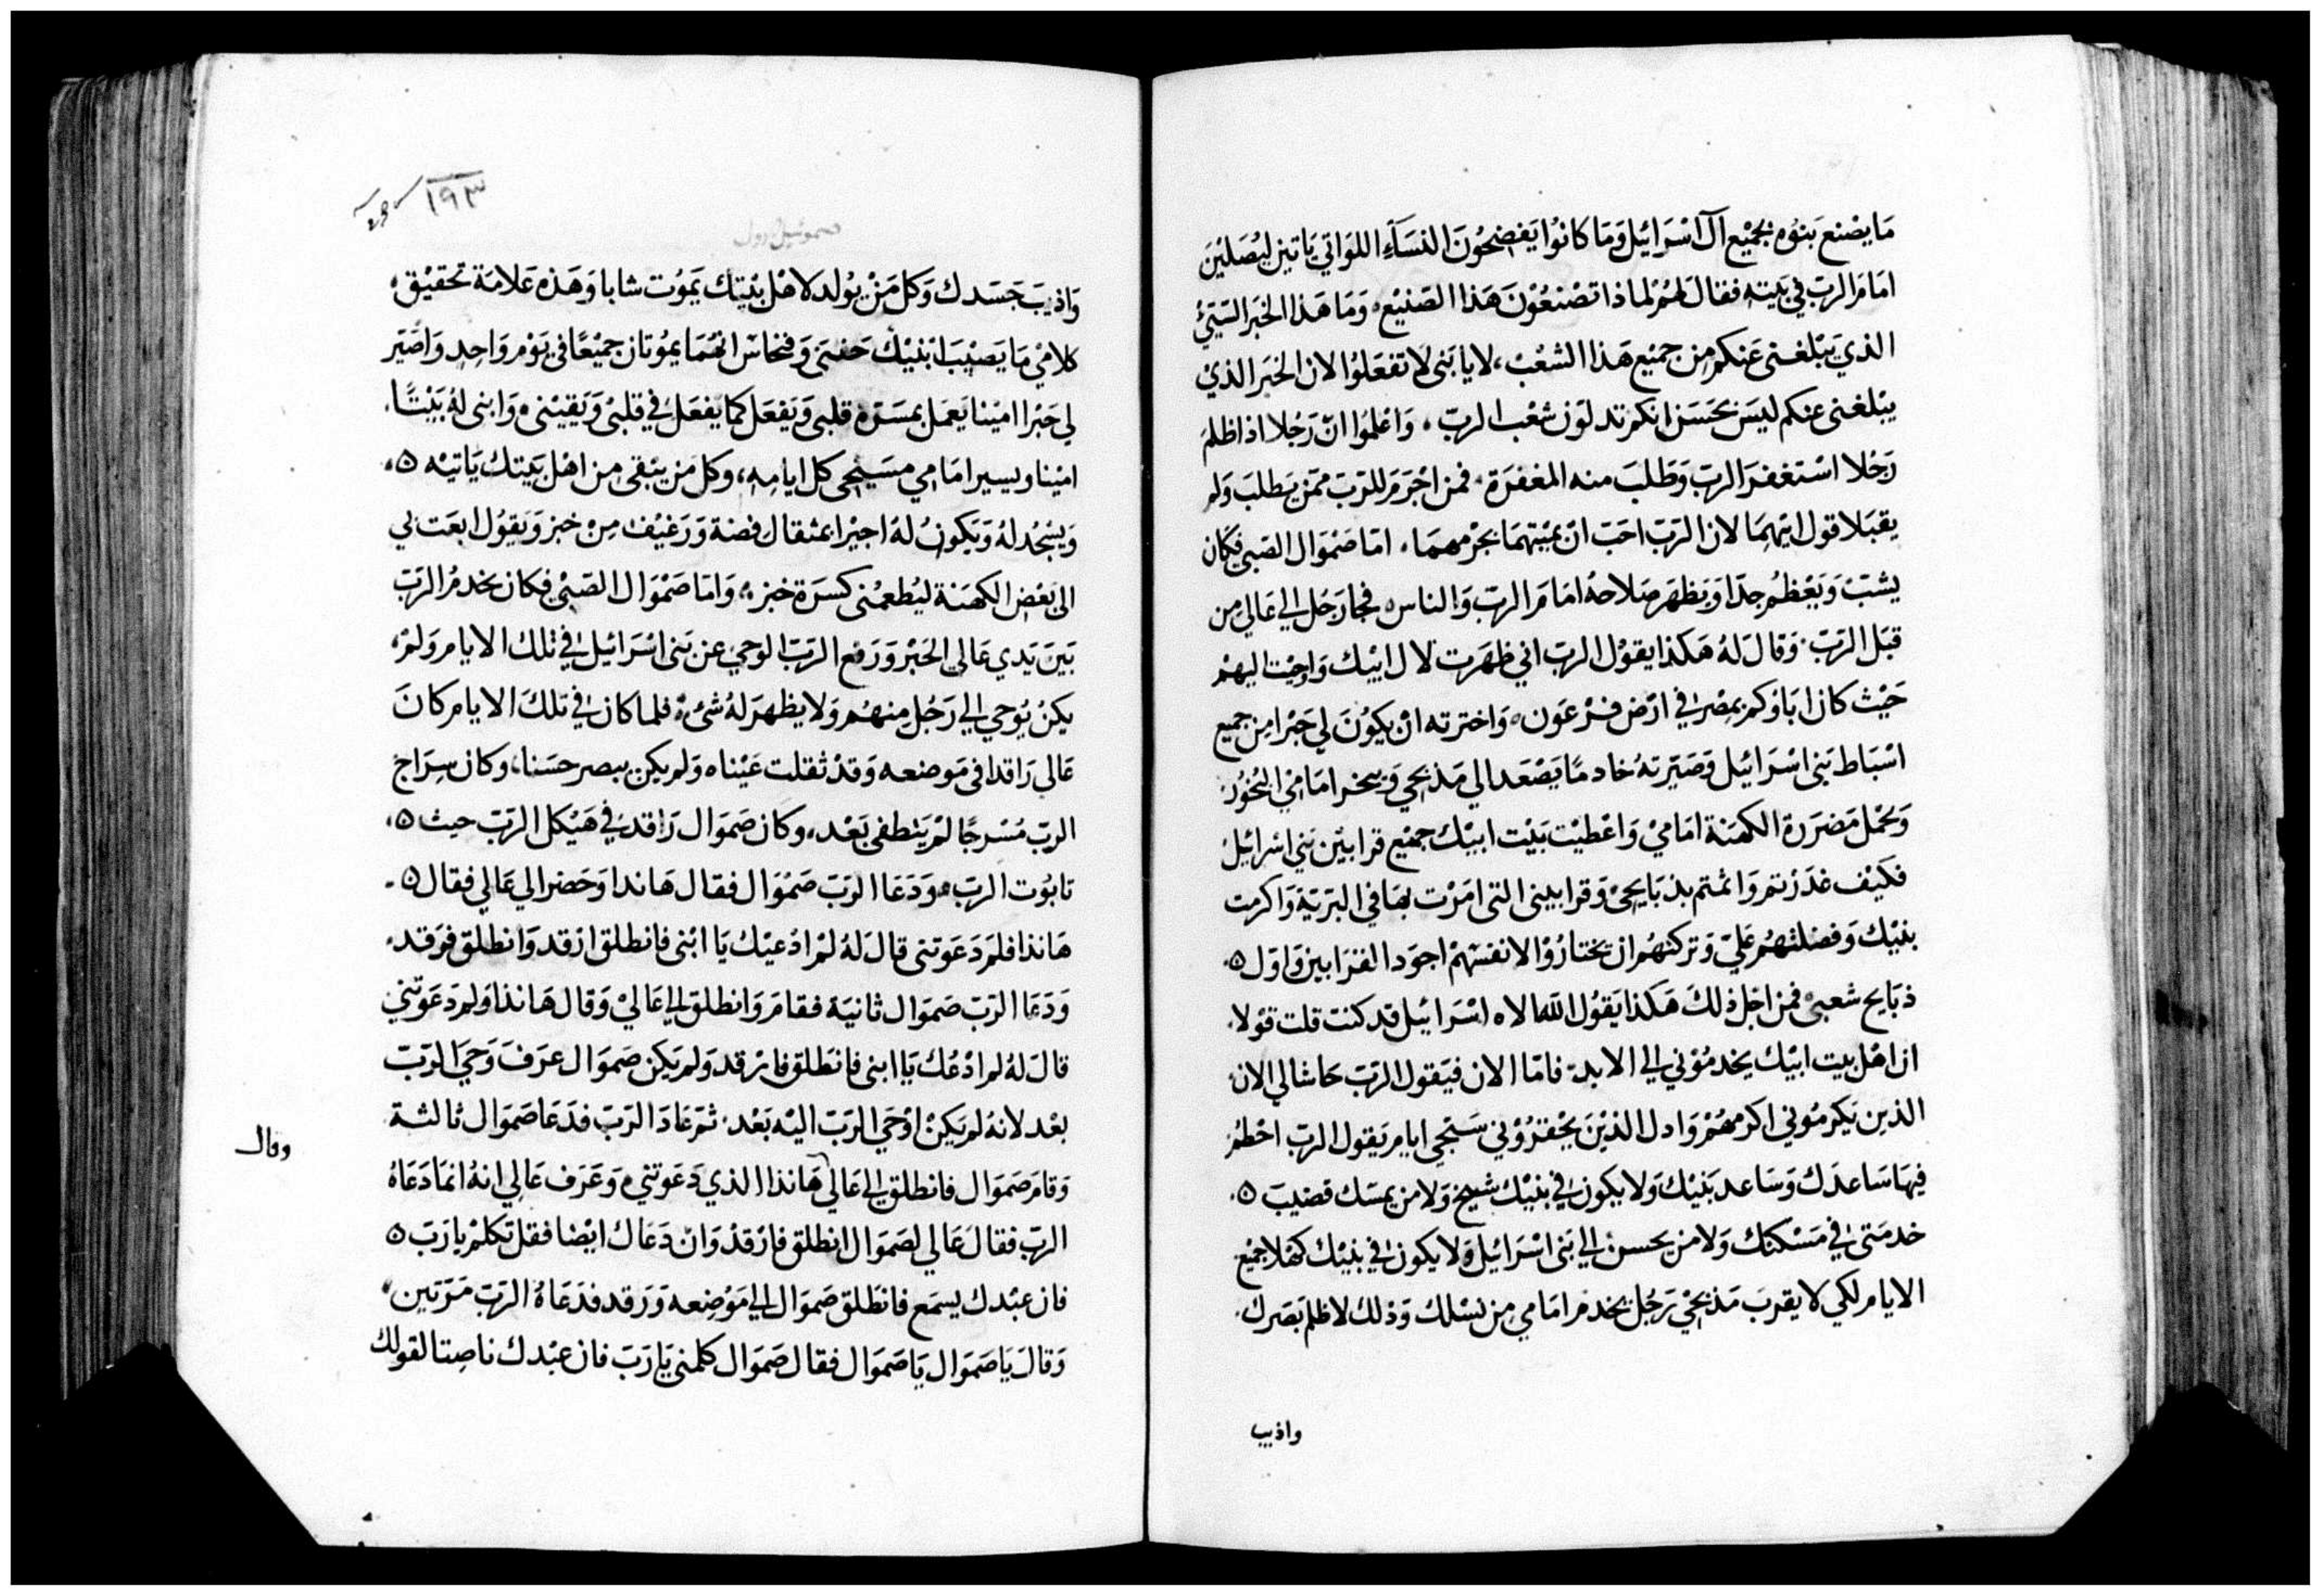 مَا يصْنع بَنوُه بجميْع آل اسْرَائيل وَمَا كانوُا يَفضِحُونَ النسَآءِ اللوَاتي يَاتين ليُصَلينَ
امَام الربّ في بَيته فقال لهُمْ لماذا تصْنعُوْنَ هَذا الصَنيْع، وَمَا هَذا الخبَر السَيّئ
الذيْ يَبْلغنى عَنكم مِن جميْع هَذا الشعْب، لا يا بَنى لا تفعَلوُا لان الخبَر الذيْ
يبْلغنى عنكم ليسَ بحَسَن انكم تدلوْن شعْب الربّ، وَاعْلمُوا انّ رَجُلا اذا ظلمَ
رَجُلا اسْتغفرَ الربّ وَطلبَ منه المغفرَة، فمن اجْرَمَ للرَبّ ممّن يَطلبَ وَلم
يقبَلا قول ابيْهمَا لان الرَبّ احَبّ انْ يميْتهمَا بجرْمهمَا، امّا صَمْوَال الصَبي فكان
يشبّ وَيَعْظمُ جدّا وَيَظهَر صَلاحهُ امَامَ الربّ وَالناس، فجا رَجُل الي عَالي من
قبَل الرَبّ، وَقالَ لهُ هَكذا يقوْل الربّ اني ظهَرت لال ابيْك وَاوحيْت اليهمْ
حَيْث كان ابَاؤكم بمصْر في ارْض فرْعَون، وَاخترته انْ يكوُنَ لي حَبْرا مِن جميع
اسْبَاط بَنى اسْرَائيل وَصَيّرتهُ خادمًا يَصْعَد الي مَذبحي وَيبخر امَامي البُخوُر
وَيحْمل مَضرَرة الكهنَة امَاميْ وَاعْطيْت بَيْت ابيْك جميْع قرابيْن بَني اسْرائيل
فكيْف غدَرْتم وَاثمْتم بذبَايحىْ وَقرابينى التى امَرْت بهَا في البَرّيّة وَاكرمت
بنيْك وَفضلتهُم عَليّ وَتركتهُم ان يختارُوْا لانفسَهمْ اجوَد القرَابين وَاوّل
ذبَايح شعبىْ فمن اجْل ذلكَ هَكذا يَقوُل اللّه الاه اسْرَائيل قد كنت قلت قوْلا
ان اهْل بيت ابيْك يخدمُوْني الي الابد، فامّا الان فيَقول الرَبّ حَاشا لي لان
الذين يَكرمُوني اكرمهمْ وَادل الذيْنَ يَحْقرُوْني سَتجي ايام يَقول الربّ احْطمْ
فيهَا سَاعدَك وَسَاعد بَنيْك وَلا يكون في بنيْك شيْخ وَلا من يمسَك قضيبَ
خدمَتى في مَسْكنك وَلا من يحسن الي بَنى اسْرَائيل وَلا يكون في بنيْك كهْلا جميْع
الايام لكي لا يقربَ مَذبحيْ رَجُل يخدمَ امَامي مِن نسْلك وَذلك لاظلم بَصَرك
واذيب
١٩٣
صموئيل اول
وَاذيبَ جَسَدك وَكل مَنْ يوُلد لاهْل بيْتك يَموُت شابا وَهَذه عَلامَة تحقيْق
كلاميْ مَا يَصيْبَ ابْنيْك حَفنىَ وَفنحاسَ انهُمَا يموُتان جميْعًا في يَوْم وَاحِد وَاصَيّر
لي حَبْرا اميْنا يَعمَل بمسَرّة قلبى وَيَفعَل كما يفعَل في قلبىْ وَيَقيْنى، وَابنى لهُ بَيْتًا
اميْنا ويسير امَامي مسَيْحى كل ايامِه، وكل مَن يبْقى من اهْل بَيتك يَاتيْه
وَيسْجُد لهُ وَيكونُ لهُ اجيْرا بمثقال فضة وَرَغيْف مِنْ خبز وَيَقوُل ابعَت بي
الىَ بَعْض الكهنَة ليُطعمْنى كسَرَة خبز، وَامّا صَمْوَال الصَبيْ فكان يخدمُ الرَبّ
بَينَ يَدي عَالي الحَبْر وَرَفع الربّ الوَحيْ عن بَنى اسْرَائيل في تلكَ الايام وَلمْ
يكنْ يوُحي الي رَجُل مِنهُم وَلا يظهَرَ لهُ شئْ، فلما كان في تلكَ الايام كانَ
عَالي رَاقدا في مَوضعه وَقدْ ثقلت عَيْناه وَلم يكن يبصر حسَنا، وكان سِرَاجْ
الربّ مُسْرجًا لمْ يَنطفى بَعْد، وكان صَموَال رَاقد في هَيْكل الرَبّ حيث
تابوُت الربّ، وَدَعَا الرَبّ صَمُوَال فقال هَاندا وَحَضر الي عَالي فقال
هَانذا فلمَ دَعَوتنى قالَ لهُ لمْ ادْعيْكُ يَا ابْنى فانطلق ارْقد وَانطلق فرَقد
وَدَعَا الرَبّ صَموَال ثانيَة فقامَ وَانطلق الي عَاليْ وَقال هَانذا وَلم دَعَوتنيْ
قالَ لهُ لم ادْعُك يَا ابنى فانطَلق فارْقد وَلم يَكن صَموَال عرَفَ وَحيَ الرَبّ
بعْد لانهُ لم يَكنْ اوْحَي الرَبّ اليْه بَعْد، ثمّ عَادَ الرَبّ فدَعَا صَموَال ثالثة
وَقامَ صَموَال فانطلق الي عَالي هَانذا الذي دَعَوتنيْ، وَعَرَف عَالِي انهُ انمَا دَعَاهُ
الربّ فقال عَالي لصَموَال انطلق فارْقدْ وَانْ دَعَاك ايْضا فقل تَكلمْ يا رَبّ
فان عبْدك يسمَع فانطَلق صَموَال الي مَوْضِعه وَرَقد فدَعَاهُ الرَبّ مَرّتين
وَقالَ يَا صَموَال يَا صَموَال فقال صَموَال كلمنى يَا رَبّ فان عبْدك ناصِتا لقولك
وقال